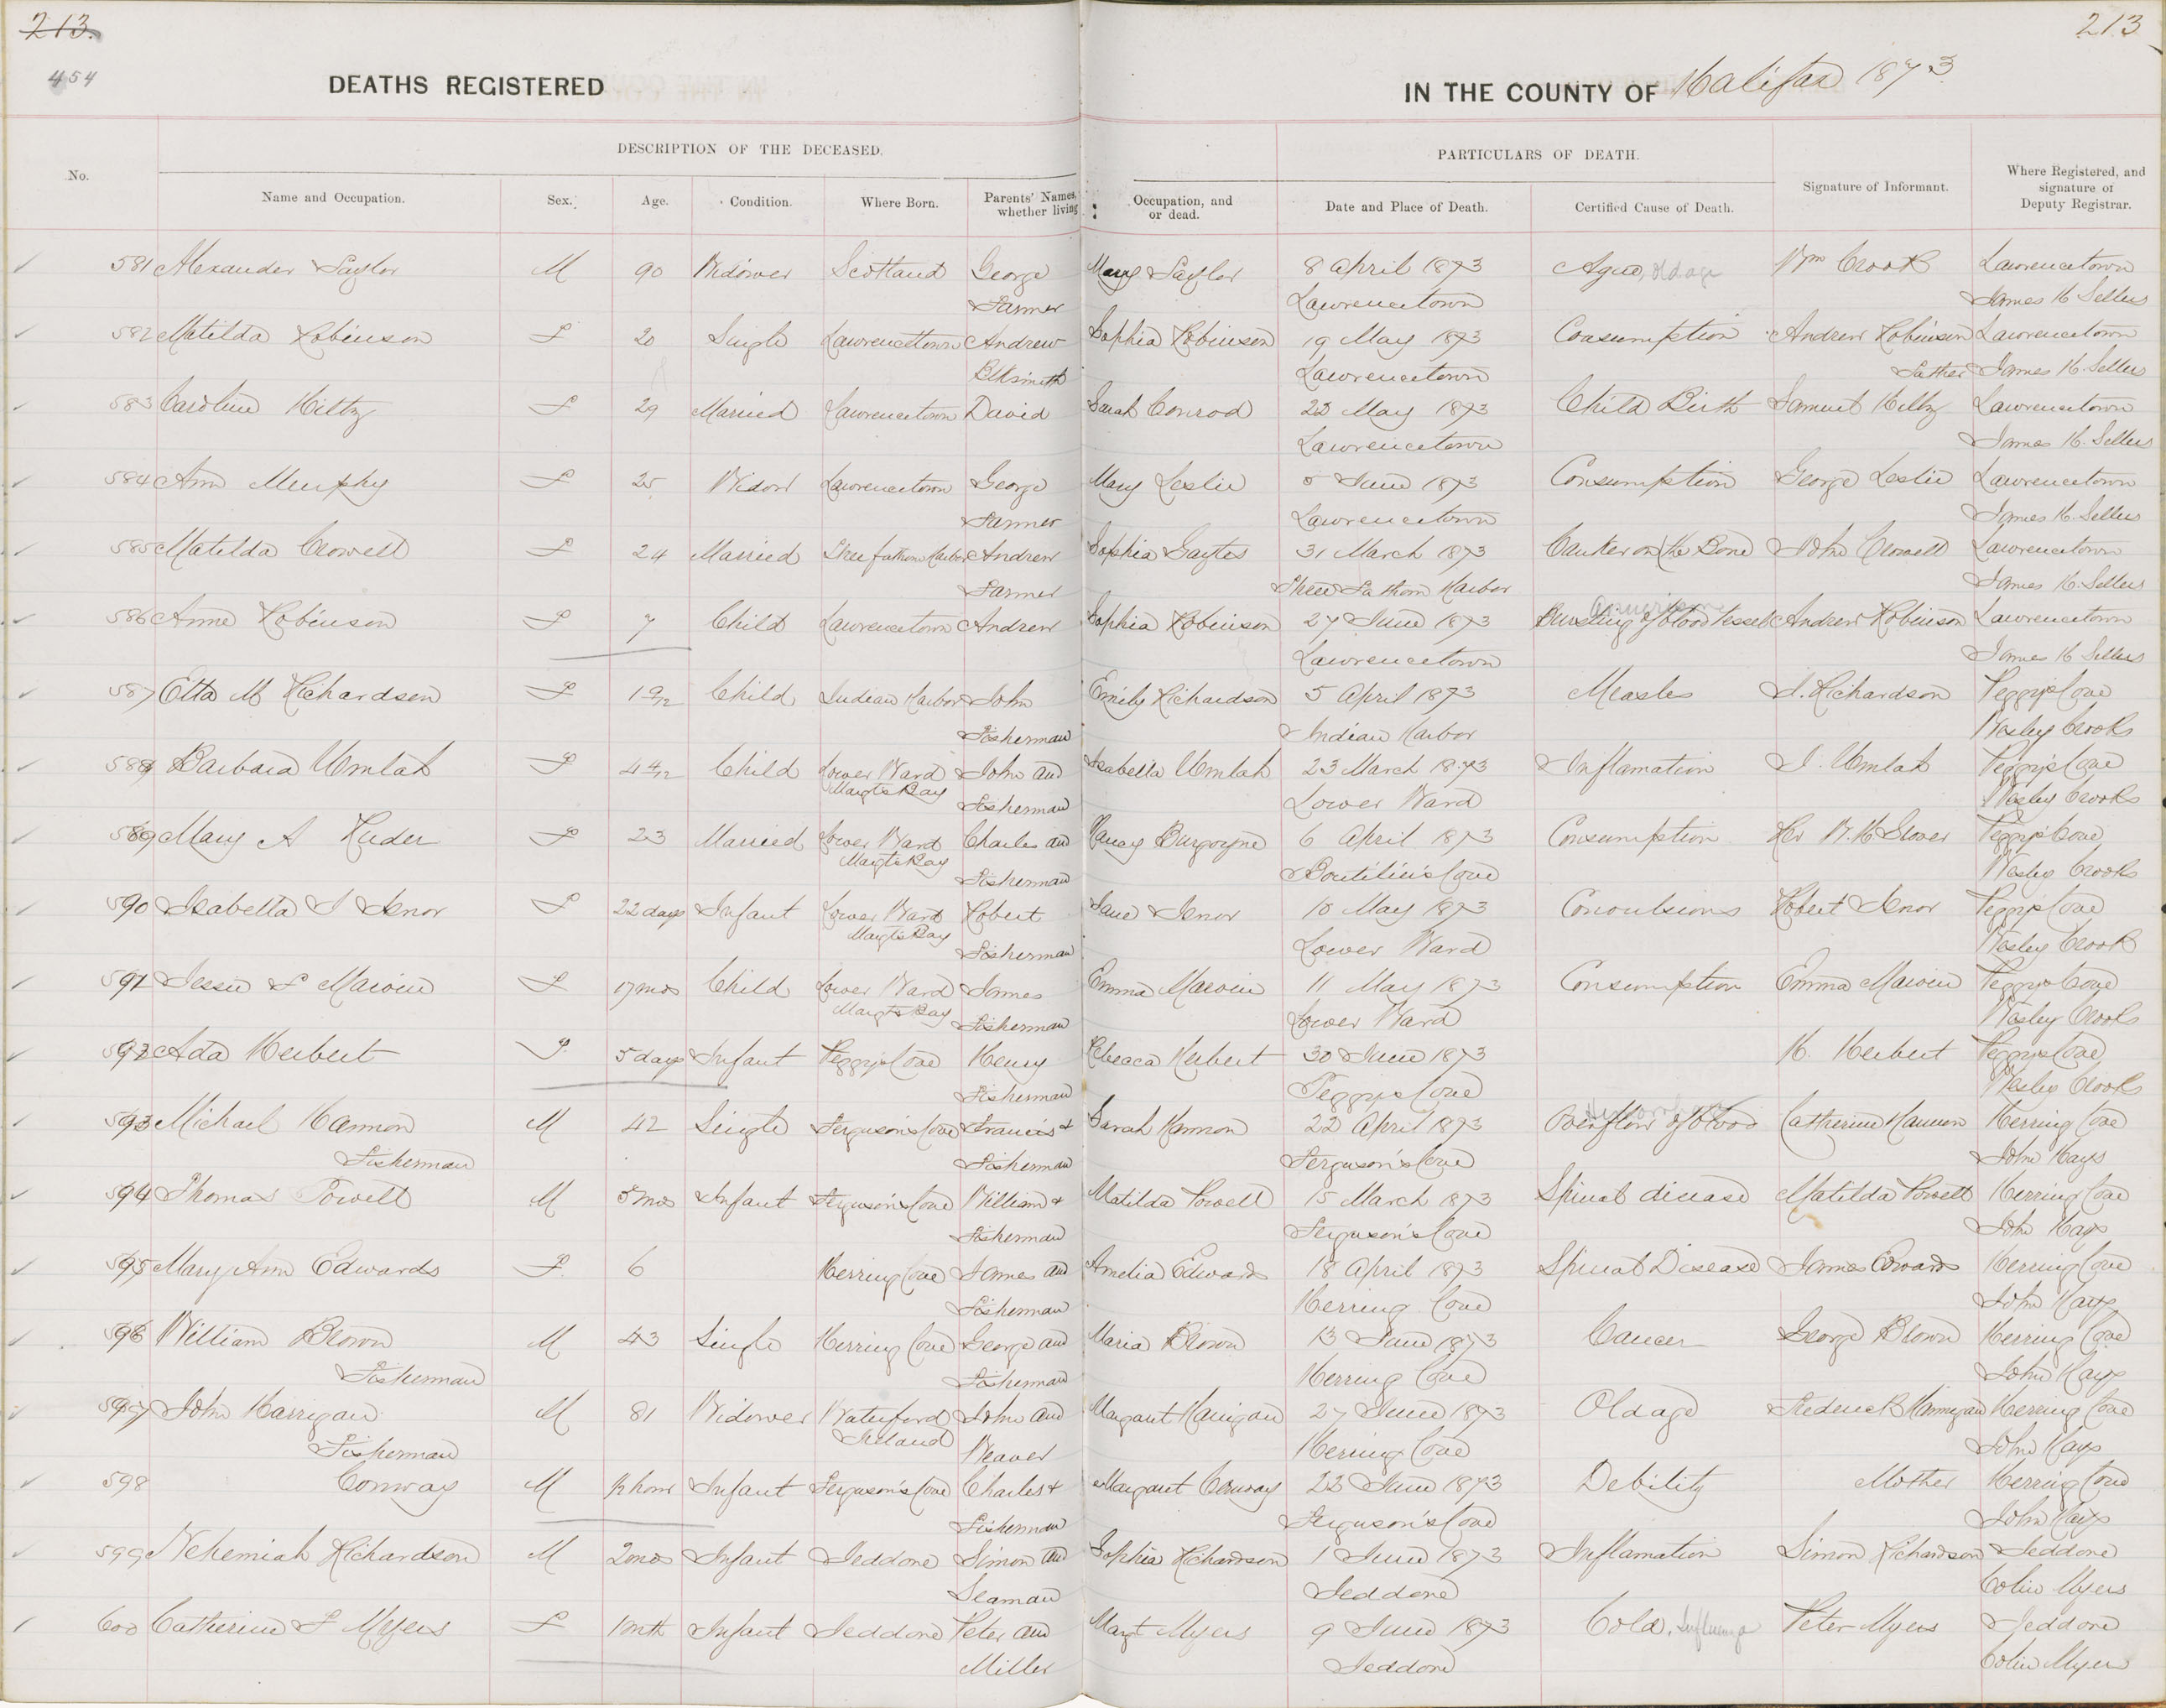 213.
213
454
DEATHS REGISTERED
IN THE COUNTY OF Halifax 1873
DESCRIPTION OF THE DECEASED.
PARTICULARS OF DEATH.
No.
Name and Occupation.
Sex.
Age.
Condition.
Where Born.
Parents' Names, whether living
: Occupation, and or dead.
Date and Place of Death.
Certified Cause of Death.
Signature of Informant.
Where Registered, and signature of Deputy Registrar.
581 Alexander Saylor M 90 Widower Scotland George Mary Saylor 8 April 1873 Ague, old age Wm Crook Lawrencetown
Farmer Lawrencetown James H Sellers
582 Matilda Robinson F 20 Single Lawrencetown Andrew Sophia Robinson 19 May 1873 Consumption Andrew Robinson Lawrencetown
Blksmith Lawrencetown Father James H. Sellers
583 Caroline Hiltz F 29 Married Lawrencetown David Sarah Conrod 23 May 1873 Child Birth Samuel Hiltz Lawrencetown
Lawrencetown James H. Sellers
584 Ann Murphy F 25 Widow Lawrencetown George Mary Leslie 5 June 1873 Consumption George Leslie Lawrencetown
Farmer Lawrencetown James H. Sellers
585 Matilda Crowell F 24 Married Three fathom Harbor Andrew Sophia Gaytes 31 March 1873 Canker on the Bone John Crowell Lawrencetown
Farmer Three Fathom Harbor James H. Sellers
586 Anne Robinson F 7 Child Lawrencetown Andrew Sophia Robinson 27 June 1873 Bursting of blood Vessel Andrew Robinson Lawrencetown
Lawrencetown James H Sellers
587 Etta M Richardson F 1 9/12 Child Indian Harbor John Emily Richardson 5 April 1873 Measles J. Richardson Peggys Cove
Fisherman Indian Harbor Wesley Crooks
588 Barbara Umlah F 4 4/12 Child Lower Ward John and Isabella Umlah 23 March 1873 Inflamation J. Umlah Peggys Cove
Margts Bay Fisherman Lower Ward Wesley Crooks
589 Mary A Huder F 23 Married Lower Ward Charles and Nancy Burgoyne 6 April 1873 Consumption Peggys Cove
Margts Bay Fisherman Boutilier's Cove Wesley Crooks
590 Isabella J Senor F 22 days Infant Lower Ward Robert Jane Senor 10 May 1873 Convulsions Robert Senor Peggys Cove
Margts Bay Fisherman Lower Ward Wesley Crook
591 Jessie F Marvin F 17 mos Child Lower Ward James Emma Marvin 11 May 1873 Consumption Emma Marvin Peggys Cove
Margts Bay Fisherman Lower Ward Wesley Crooks
592 Ada Herbert F 5 days Infant Peggys Cove Henry Rebecca Herbert 30 June 1873 H. Herbert Peggys Cove
Fisherman Peggys Cove Wesley Crooks
593 Michael Hannon M 42 Single Ferguson's Cove Francis & Sarah Hannon 22 April 1873 Overflow of blood Catherine Hannon Herring Cove
Fisherman Fisherman Ferguson's Cove John Hays
594 Thomas Powell M 5 mos Infant Ferguson's Cove William & Matilda Powell 15 March 1873 Spinal disease Matilda Powell Herring Cove
Fisherman Ferguson's Cove John Hays
595 Mary Ann Edwards F 6 Herring Cove James and Amelia Edwards 18 April 1873 Spinal Disease James Edwards Herring Cove
Fisherman Herring Cove John Hays
596 William Brown M 43 Single Herring Cove George and Maria Brown 13 June 1873 Cancer George Brown Herring Cove
Fisherman Fisherman Herring Cove John Hays
597 John Harrigan M 81 Widower Waterford John and Margaret Harrigan 27 June 1873 Old age Frederick Herring Cove
Fisherman Ireland Weaver Herring Cove John Hays
598 Conway M ½ hour Infant Ferguson's Cove Charles & Margaret Conway 22 June 1873 Debility Mother Herring Cove
Fisherman Ferguson's Cove John Hays
599 Nehemiah Richardson M 2 mos Infant Jeddore Simon and Sophia Richardson 1 June 1873 Inflamation Simon Richardson Jeddore
Seaman Jeddore Colin Myers
600 Catherine F Myers F 1 mth Infant Jeddore Peter and Margt Myers 9 June 1873 Cold, Influenza Peter Myers Jeddore
Miller Jeddore Colin Myers